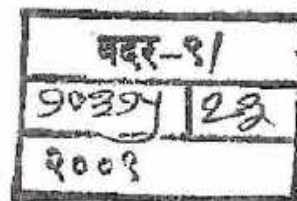 बदर-९/
१०३९५ २३
२००९